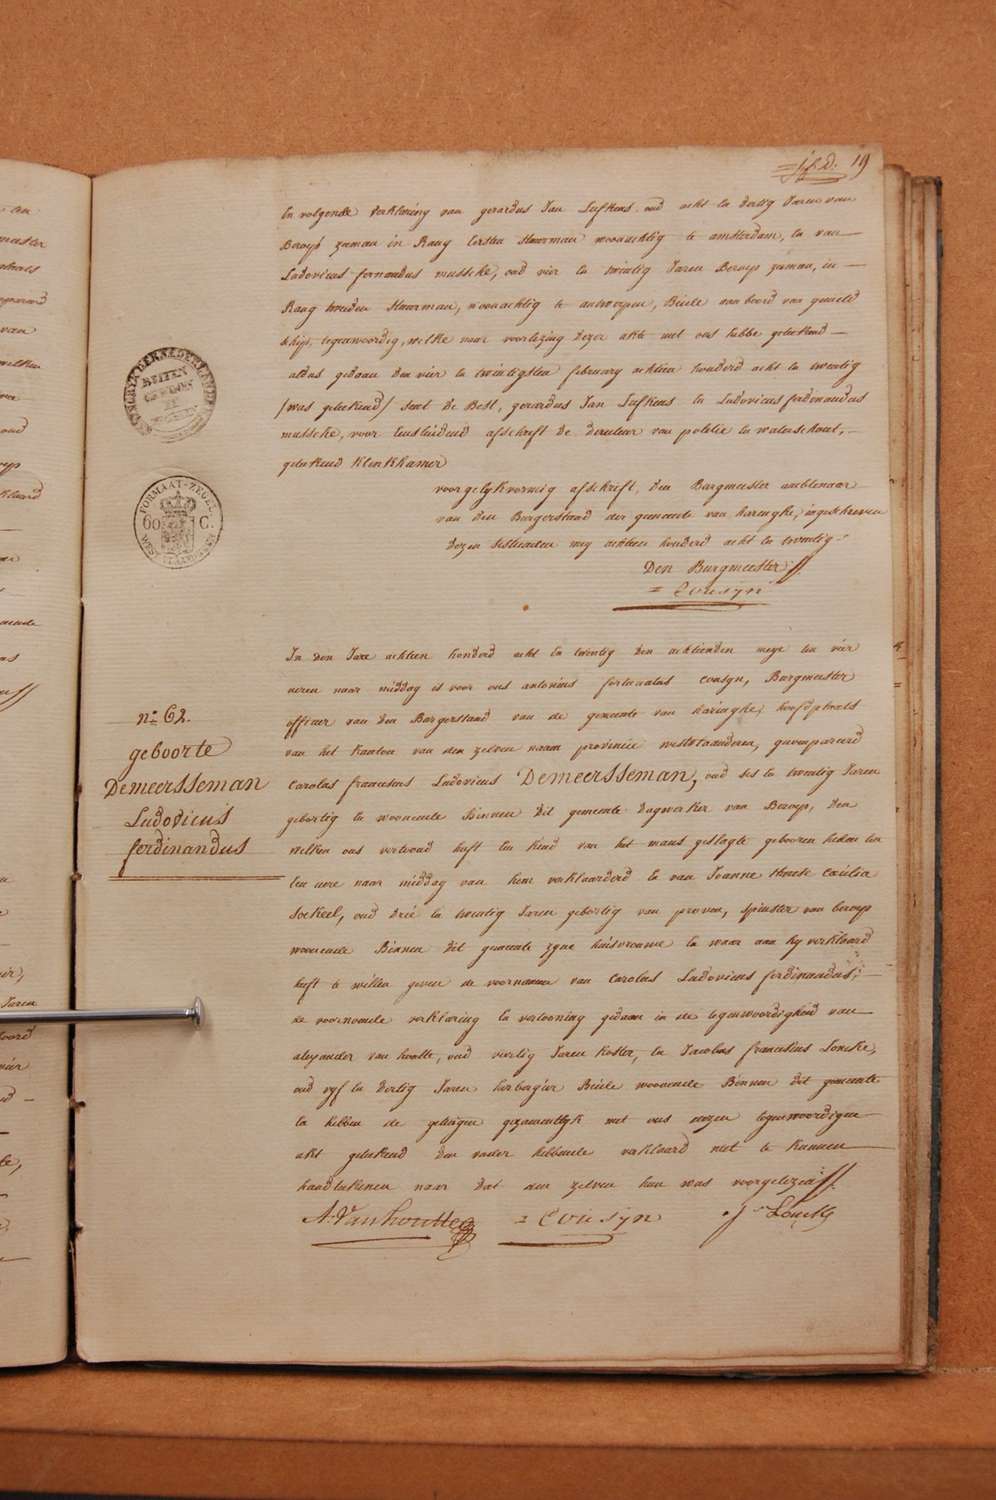 19
En volgende verklaring van gerardus Jan Lufkens oud acht en dertig Jaren van
Beroep zeeman in Rang Eersten Stuurman woonachtig te amsterdam, en van
Ludovicus fernandus musseke, oud vier en twintig Jaren Beroep zeeman, in
Rang tweeden Stuurman, woonachtig te antwerpen, Beide aan boord van gemeld
schip, tegenwoordig, welke naar voorlezing dezer akte met ons hebbe geteekend
aldus gedaan den vier en twintigsten february achtien honderd acht en twentig
/was geteekend/ de Best, gerardus Jan Lufkens en Ludovicus ferdenandus
musseke, voor Eensluidend afschrift De derecteur van politie en waterschout,
geteekend Klenkhamer
voorgelykvormig afschrift, den Burgmeester ambtenaar
van den Burgerstand der gemeente van haringhe, ingeschreven
dezen mey achtien honderd acht en twentig
Den Burgmeester
= Cousyn
KONINGRYK DER NEDERLANDEN
BUITEN
FORMAAT-ZEGEL
60 C.
WEST VLAANDEREN
n:º 62.
geboorte
Demeersseman
Ludovicus
ferdinandus
In den Jare achtien honderd acht en twentig den achtienden meye ten vier
ueren naar middag is voor ons antonius fortunatus Cousyn, Burgmeester
officier van den Burgerstand van de gemeente van haringhe, hoofdplaats
van het kanton van den zelven naam provincie westvlaanderen, gecompareerd
Carolus franciscus Ludovicus Demeersseman, oud ses en twentig Jaren
gebortig en woonende Binnen dit gemeente dagwerker van Beroep, den
welken ons vertoond heeft een kind van het mans geslagte geboren heden ten
een uere naar middag van hem verklaarderd en van Joanne therese Cæcilia
Sockeel, oud drie en twentig Jaren gebortig van proven, spinster van beroep
woonende Binnen dit gemeente zyne huisvrouwe en waar aan hy verklaard
heeft te willen geven de voornamen van Carolus Ludovicus ferdinandus;
de voornoemde verklaring en vertooning gedaan in de tegenwoordigheid van
alexander van houtte, oud viertig Jaren koster, en Jacobus franciscus Loncke,
oud vyf en dertig Jaren herbergier Beide woonende Binnen dit gemeente
en hebben de getuigen gezamentlyk met ons dezen tegenwoordigen
akt geteekend den vader hebbende verklaard niet te kunnen
handteekenen naar dat aen zelven hun was voorgelezen
A. Vanhoutte
= Cousyn
J. Loncke